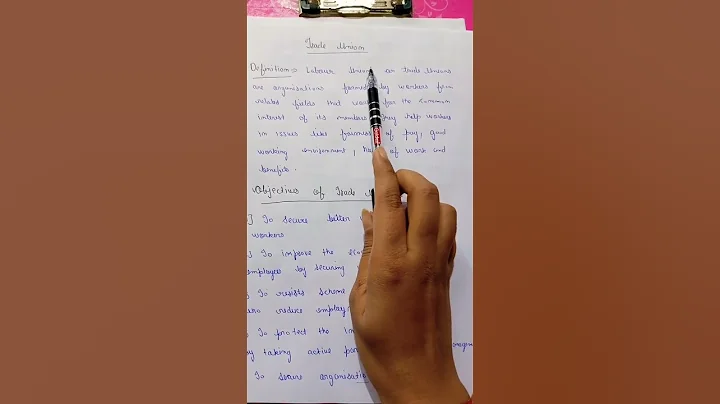 Trade Union
Definition ⇒ Labour Unions or Trade Unions
are organisations formed by workers from
related fields that work for the common
interest of its members. They help workers
in issues like fairness of pay, good
working environment, of work and
benefits.
Objectives of Trade
] To secure better
workers
] To improve the
employees by securing
] To resists scheme
reduce employ
To protect the in
by taking active par
To secure organisatio